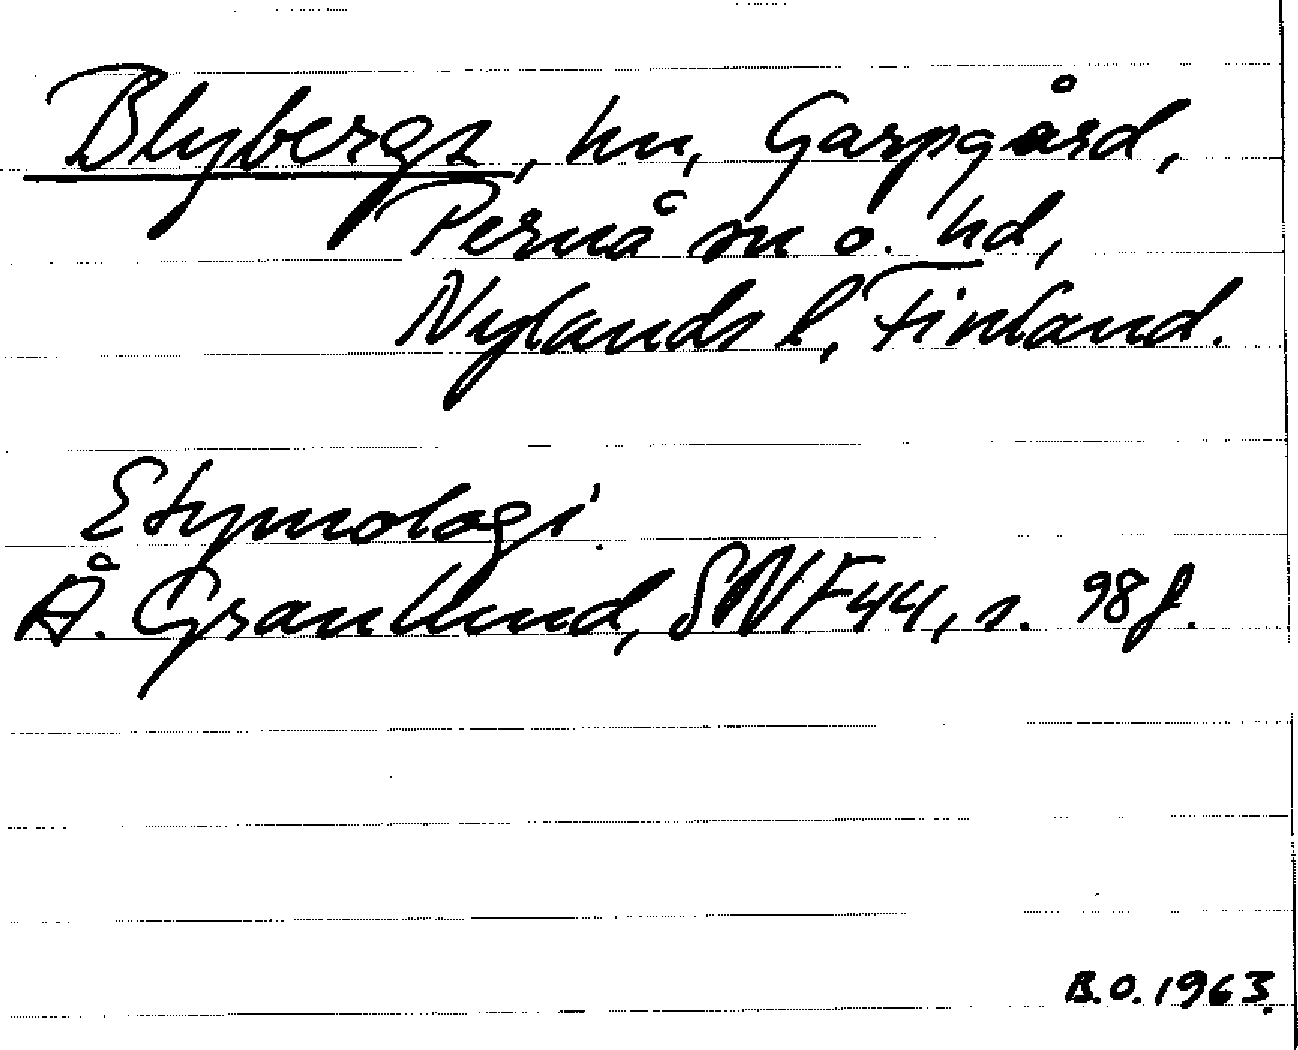 Blybergs, hn, Garpgård,
Pernå sn o. hd,
Nylands l, Finland.
Etymologi.
Å. Granlund, SNF 44, s. 98 f.
B.O. 1963.